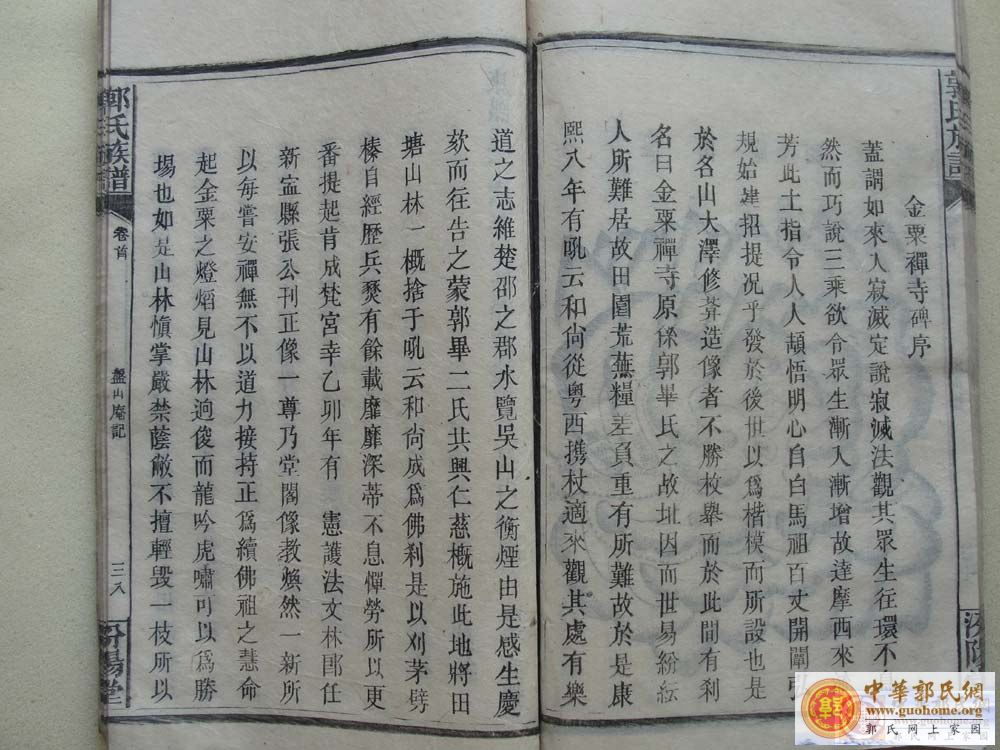 郭氏族譜
金粟禪寺碑序
蓋謂如來入寂滅定說寂滅法觀其眾生往環不
然而巧說三乘欲令眾生漸入漸增故達摩西來
芳此土指令人人頓悟明心自白馬祖百丈開闡
規始建招提況乎發於後世以為楷模而所設也是
於名山大澤修葬造像者不勝枚舉而於此間有剎
名曰金粟禪寺原係郭畢氏之故址因而世易紛紜
人所難居故田園荒蕪糧差負重有所難故於是康
熙八年有吼云和尚從粵西携杖適來觀其處有樂
汾陽
道之志維楚邵之郡水覽吳山之衡煙由是感生慶
欬而往告之蒙郭畢二氏共興仁慈概施此地將田
塘山林一概捨于吼云和尚成爲佛剎是以刈茅劈
榛自經歷兵燹有餘載靡靡深蒂不息憚勞所以更
番提起肯成梵宮幸乙卯年有 憲護法文林郎任
新寍縣張公刊正像一尊乃堂閣像教煥然一新所
以每嘗安禪無不以道力接持正爲續佛祖之慧命
起金粟之燈熖見山林逈俊而龍吟虎嘯可以爲勝
場也如是山林愼掌嚴禁蔭敝不擅輕毀一枝所以
郭氏族譜
卷首
盤山庵記
三八
汾陽堂
中華郭氏網
www.guohome.org
郭氏网上家园